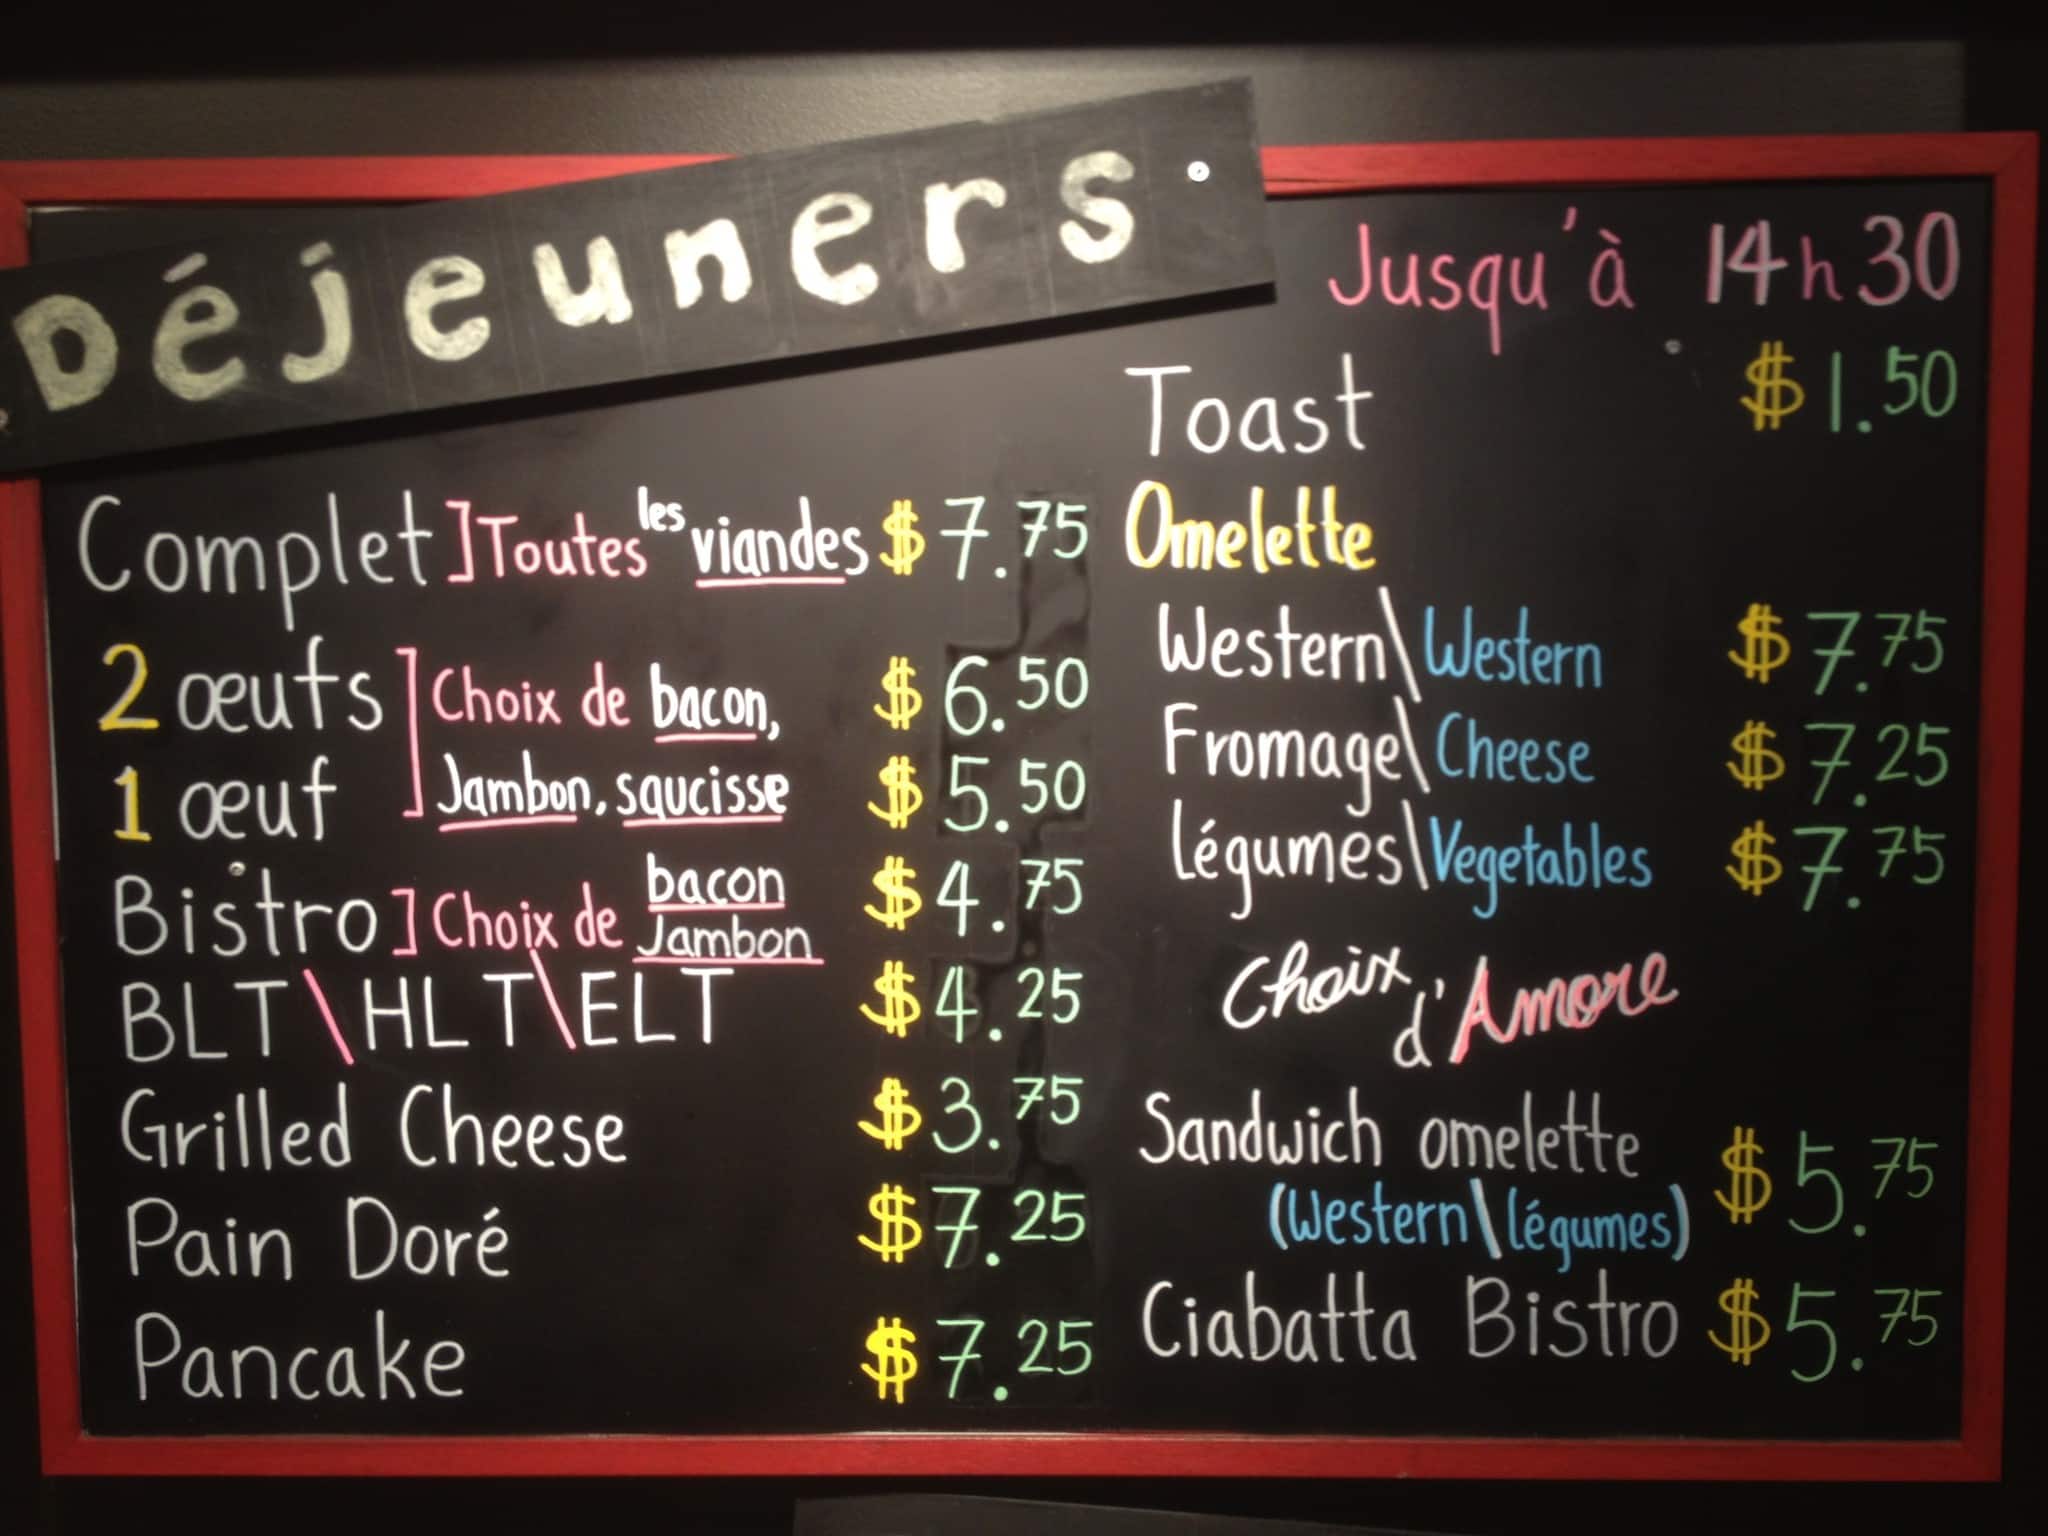 Déjeuners
Complet ] Toutes les viandes $ 7.75
2 œufs ] Choix de bacon, $ 6.50
1 œuf Jambon, saucisse $ 5.50
Bistro ] Choix de bacon Jambon $ 4.75
BLT \ HLT \ ELT $ 4.25
Grilled Cheese $ 3.75
Pain Doré $ 7.25
Pancake $ 7.25
Jusqu'à 14h30
Toast $ 1.50
Omelette
Western \ Western $ 7.75
Fromage \ Cheese $ 7.25
légumes \ Vegetables $ 7.75
Choix d'Amore
Sandwich omelette $ 5.75
(Western \ légumes)
Ciabatta Bistro $ 5.75